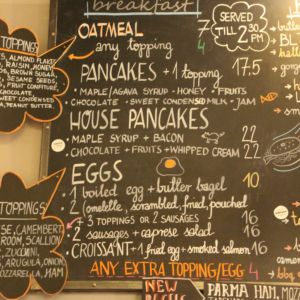 breakfast
SERVED
TILL 2:30
PM
OATMEAL
any topping 7
PANCAKES +1 topping 17.5
• MAPLE/AGAVA SYRUP • HONEY • FRUITS
CHOCOLATE • SWEET CONDENSED MILK • JAM
HOUSE PANCAKES
• MAPLE SYRUP + BACON 22
• CHOCOLATE + FRUITS + WHIPPED CREAM 22
EGGS
1 boiled egg + butter bagel 10
2 (omelette, scrambled, fried, pouched
+ 3 TOPPINGS OR 2 SAUSAGES 16
2 sausages + caprese salad 16
CROISSANT +1 fried egg + smoked salmon 16
ANY EXTRA TOPPING/EGG 4
TOPPINGS
S, ALMOND FLAKES
RAISIN, HONEY
OG, BROWN SUGAR
SESAME SEEDS
FRUIT COMFITURE,
CHOCOLATE,
SWEET CONDENSED
PEANUT BUTTER.
TOPPINGS
SE, CAMEMBERT
ROOM, SCALLION
ZUCCINI,
ARUGULA, ONION
OZZARELLA, HAM
NEW
PARMA HAM, MOZ